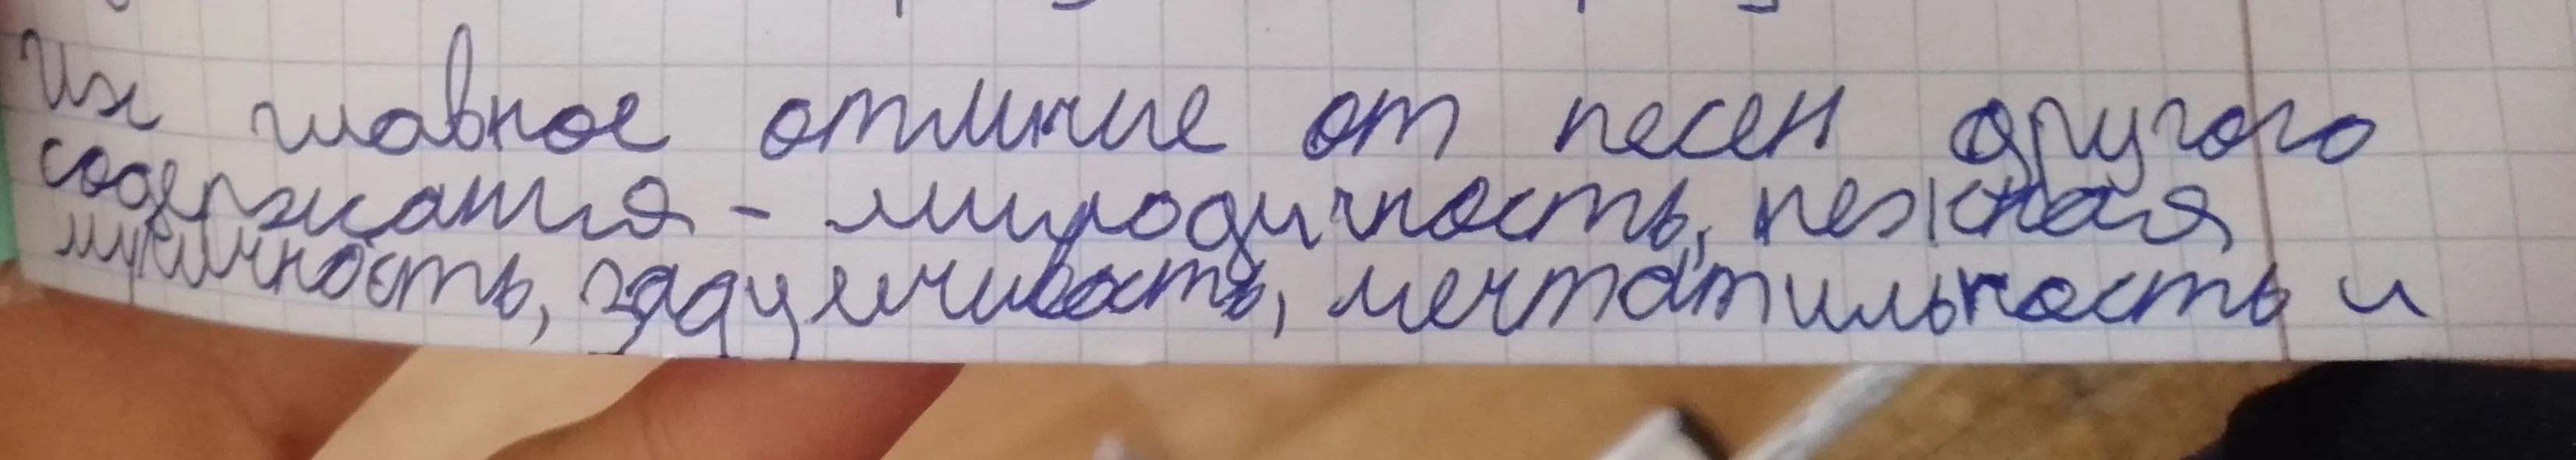 Их главное отличие от песен другого
содержания - миродичность, нежная
мукичность, задумчивость, мечтатильность и